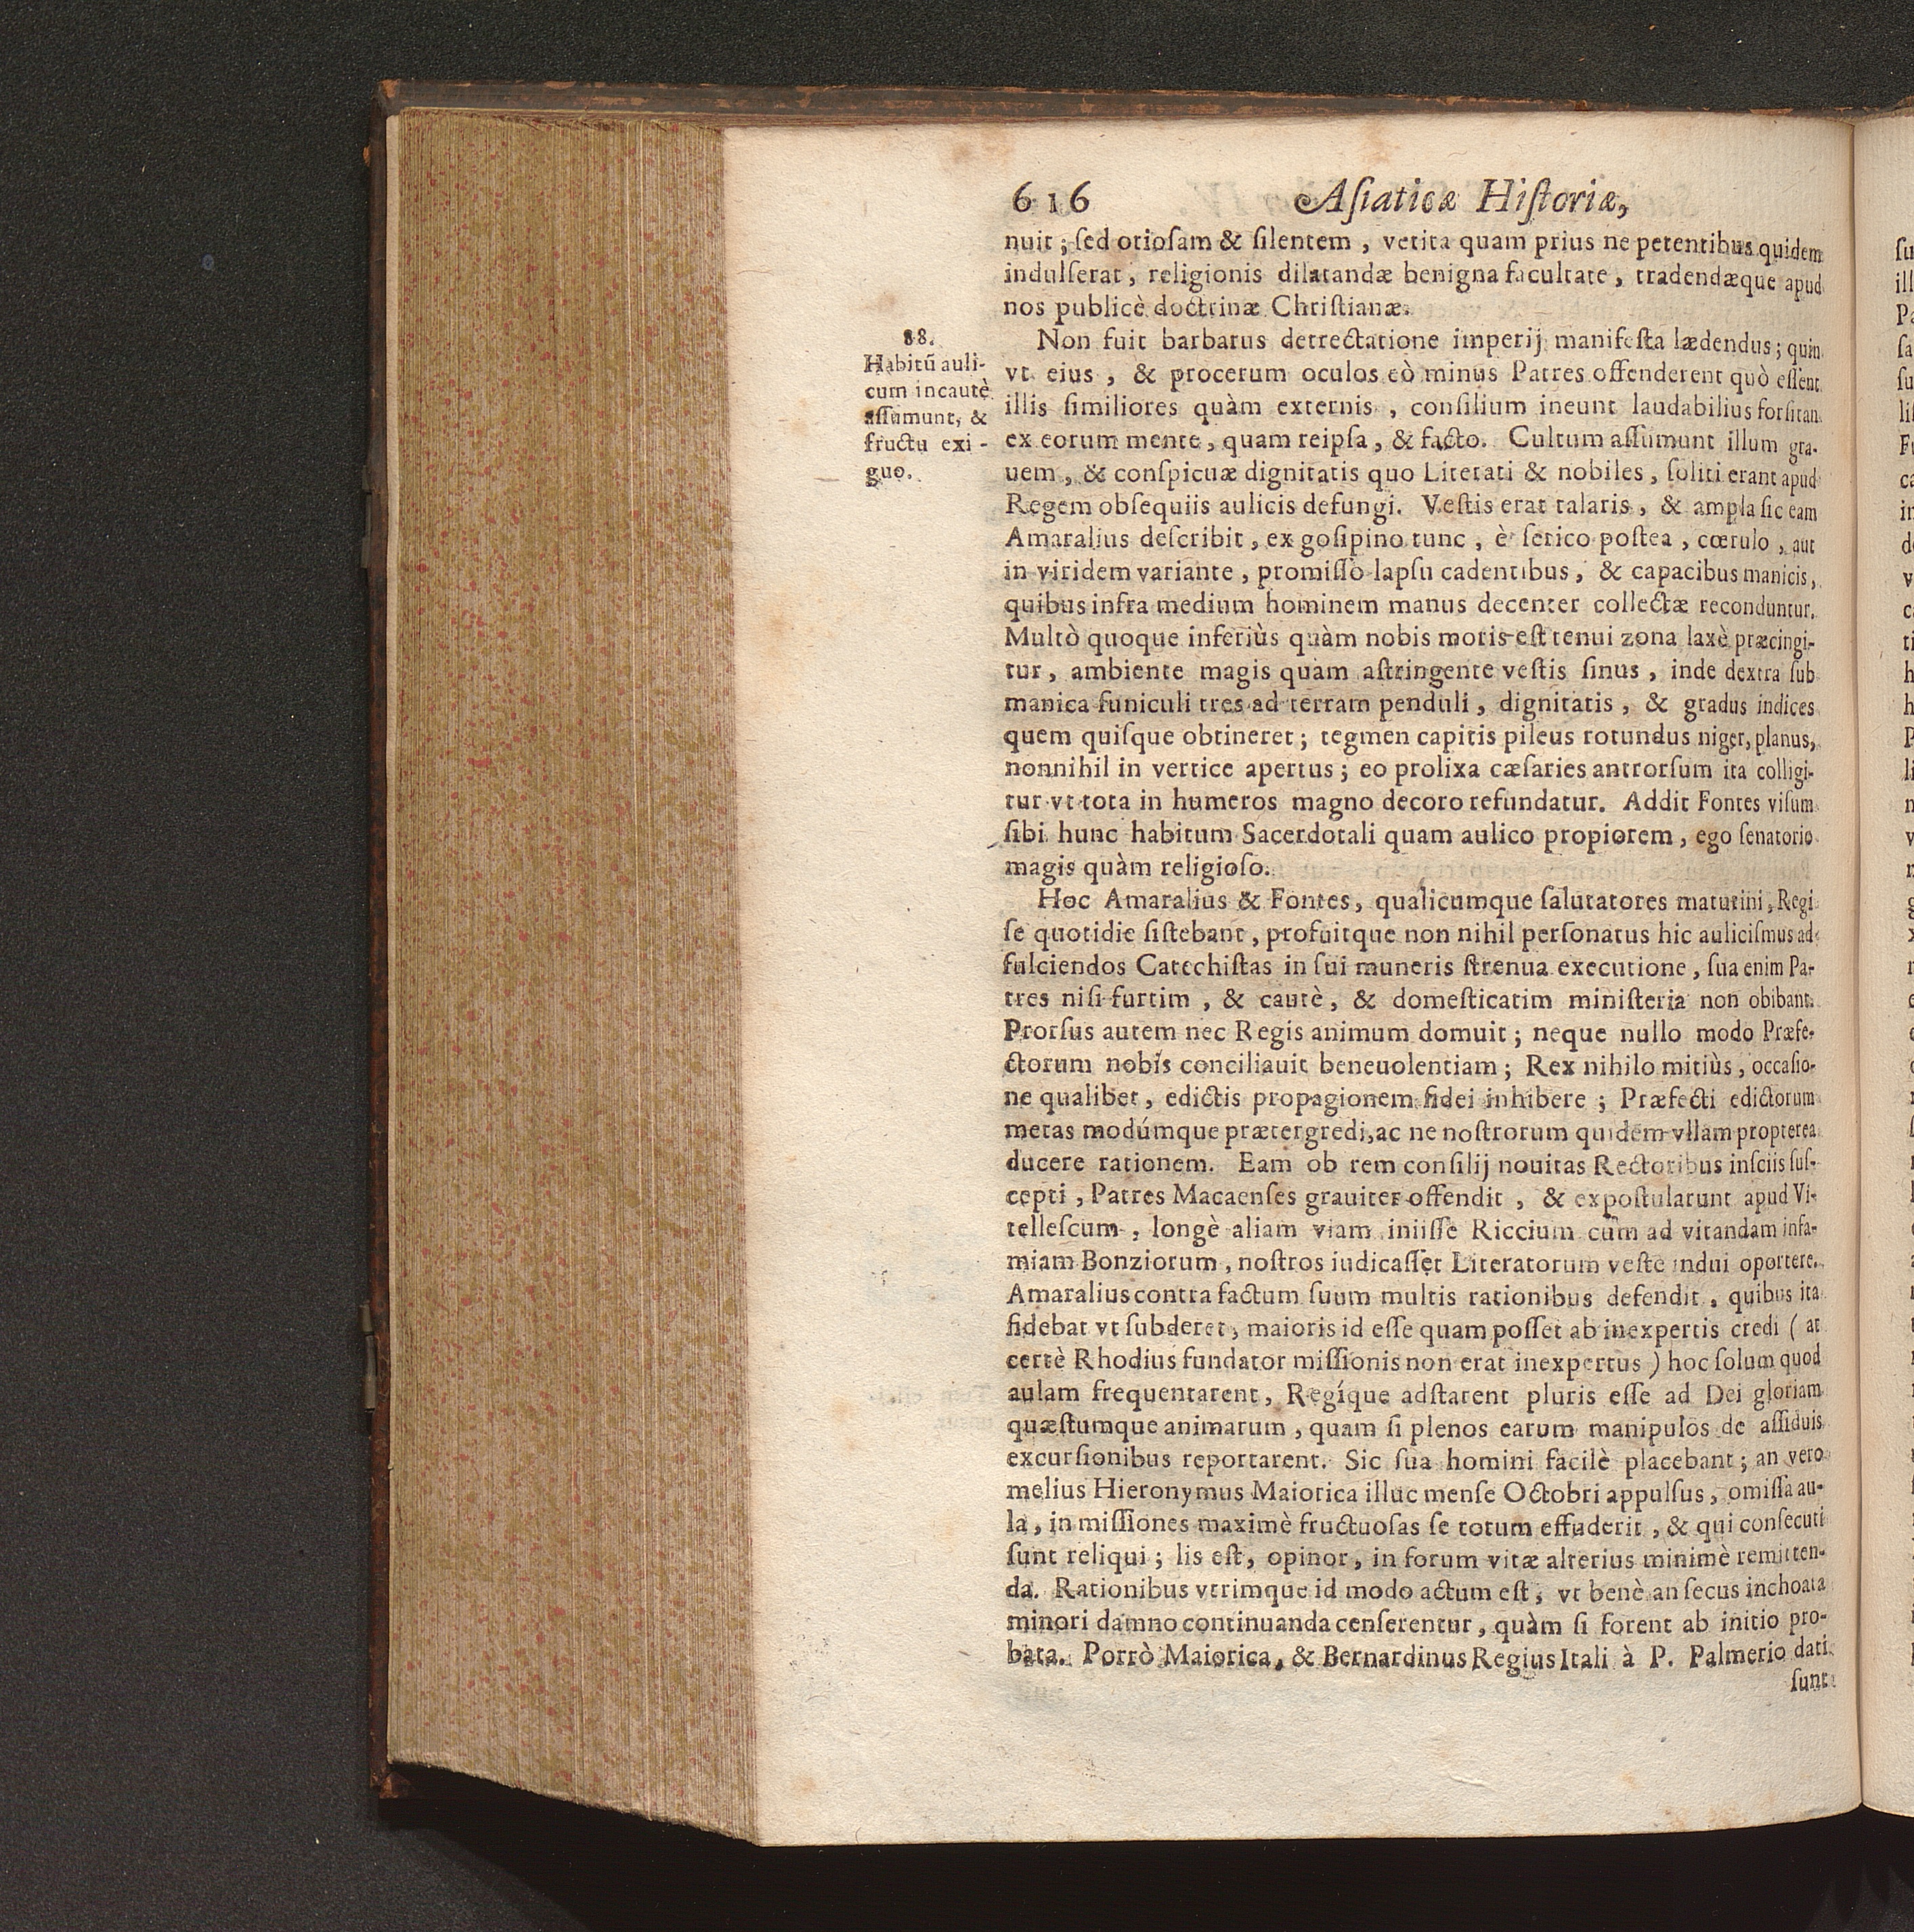 616 Asiaticæ Historiæ,
nuit; sed otiosam & silentem, vetita quam prius ne petentibus quidem
indulserat, religionis dilatandæ benigna facultate, tradendæque apud
nos publicè doctrinæ Christianæ.
88.
Habitũ auli-
cum incautè
assumunt, &
fructu exi-
guo.
Non fuit barbarus detrectatione imperij manifesta lædendus; quin
vt eius, & procerum oculos eò minus Patres offenderent quò essent
illis similiores quàm externis, consilium ineunt laudabilius forsitan
ex eorum mente, quam reipsa, & facto. Cultum assumunt illum gra-
uem, & conspicuæ dignitatis quo Literati & nobiles, soliti erant apud
Regem obsequiis aulicis defungi. Vestis erat talaris, & ampla sic eam
Amaralius describit, ex gosipino tunc, è serico postea, cœrulo, aut
in viridem variante, promisso lapsu cadentibus, & capacibus manicis,
quibus infra medium hominem manus decenter collectæ reconduntur.
Multò quoque inferiùs quàm nobis moris est tenui zona laxè præcingi-
tur, ambiente magis quam astringente vestis sinus, inde dextra sub
manica funiculi tres ad terram penduli, dignitatis, & gradus indices
quem quisque obtineret; tegmen capitis pileus rotundus niger, planus,
nonnihil in vertice apertus; eo prolixa cæsaries antrorsum ita colligi-
tur vt tota in humeros magno decoro refundatur. Addit Fontes visum
sibi hunc habitum Sacerdotali quam aulico propiorem, ego senatorio
magis quàm religioso.
Hoc Amaralius & Fontes, qualicumque salutatores matutini, Regi
se quotidie sistebant, profuitque non nihil personatus hic aulicismus ad
fulciendos Catechistas in sui muneris strenua executione, sua enim Pa-
tres nisi furtim, & cautè, & domesticatim ministeria non obibant.
Prorsus autem nec Regis animum domuit; neque nullo modo Præfe-
ctorum nobis conciliauit beneuolentiam; Rex nihilo mitiùs, occasio-
ne qualibet, edictis propagionem fidei inhibere; Præfecti edictorum
metas modúmque prætergredi, ac ne nostrorum quidem vllam propterea
ducere rationem. Eam ob rem consilij nouitas Rectoribus insciis sus-
cepti, Patres Macaenses grauiter offendit, & expostularunt apud Vi-
tellescum, longè aliam viam iniisse Riccium cùm ad vitandam infa-
miam Bonziorum, nostros iudicasset Literatorum veste indui oportere.
Amaralius contra factum suum multis rationibus defendit, quibus ita
fidebat vt subderet, maioris id esse quam posset ab inexpertis credi (at
certè Rhodius fundator missionis non erat inexpertus) hoc solum quod
aulam frequentarent, Regíque adstarent pluris esse ad Dei gloriam
quæstumque animarum, quam si plenos earum manipulos de assiduis
excursionibus reportarent. Sic sua homini facilè placebant; an vero
melius Hieronymus Maiorica illuc mense Octobri appulsus, omissa au-
la, in missiones maximè fructuosas se totum effuderit, & qui consecuti
sunt reliqui; lis est, opinor, in forum vitæ alterius minimè remitten-
da. Rationibus vtrimque id modo actum est, vt benè an secus inchoata
minori damno continuanda censerentur, quàm si forent ab initio pro-
bata. Porrò Maiorica, & Bernardinus Regius Itali à P. Palmerio dati
sunt